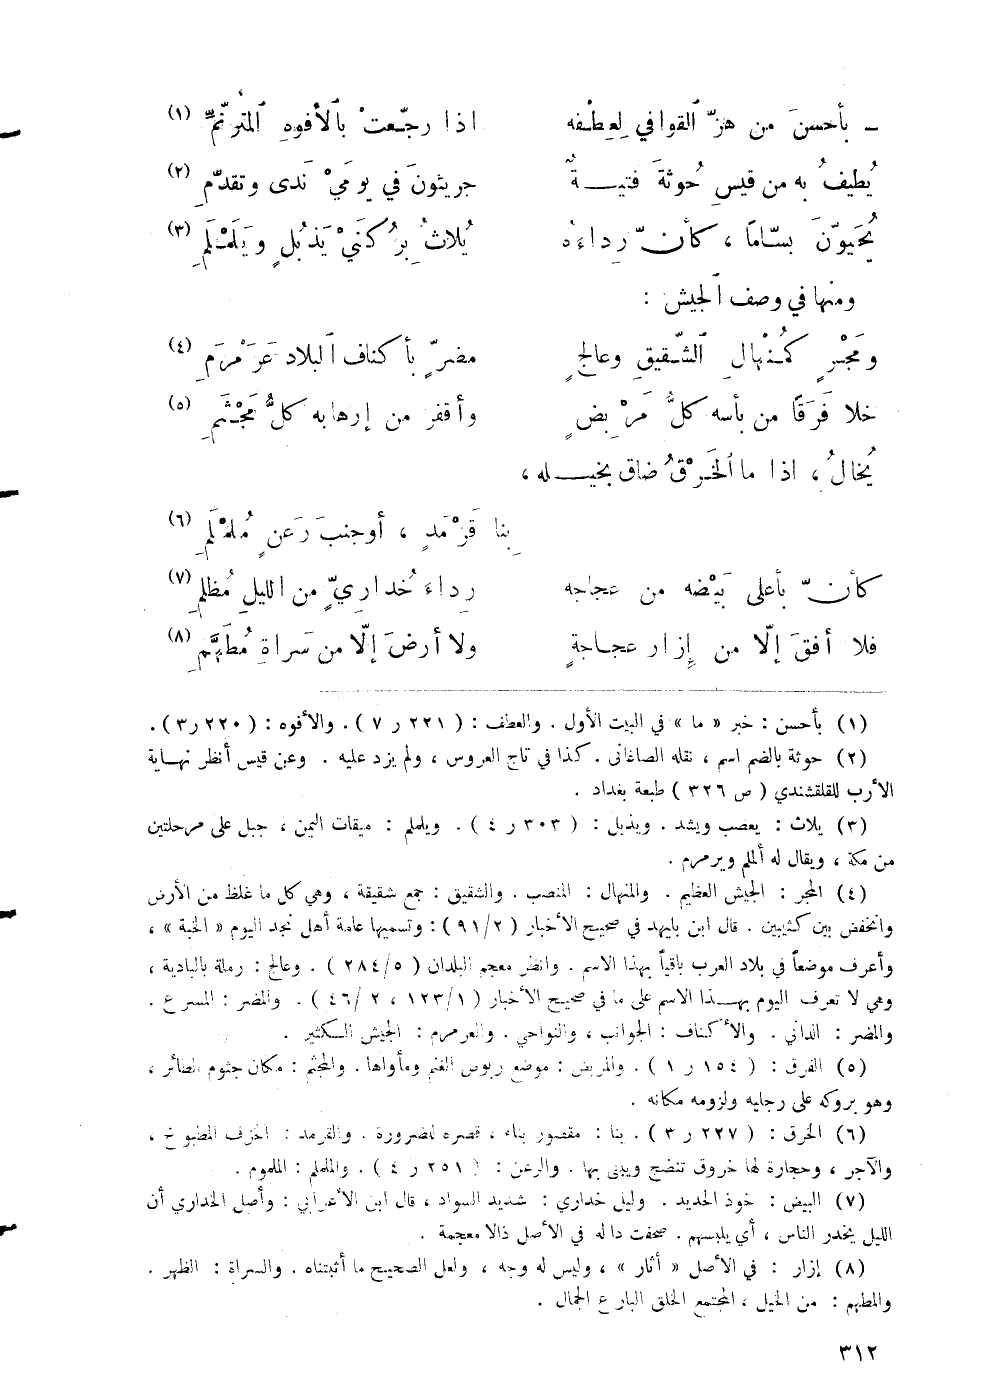 ـ بأحسنَ من هزّ القوافي لِعِطْفه    اذا رجّعتْ بالأفوهِ المترنّم (١)
يُطيفُ به من قيسِ حُوثةَ فتيـــةٌ    جريئونَ في يومَيْ نَدى وتقدّمِ (٢)
يُحَيوّنَ بسّاماً ، كأنّ رداءهُ    يُلاثُ بِرُكنَيْ يَذبُلٍ ويَلَمْلَمِ (٣)
ومنها في وصف الجيش :
ومَجْرٍ كمُنْهالِ الشّقيقِ وعالجٍ    مضرٍّ بأكناف البلاد عَرَمْرَمِ (٤)
خلا فَرَقاً من بأسه كلُّ مَرْبِضٍ    وأقفر من إرهابه كلُّ مَجْثَمِ (٥)
يُخالُ ، اذا ما الخَرْقُ ضاق بخيـــله ،
بِنا قَرْمَدٍ ، أوجنبَ رَعنٍ مُلَمْلَمِ (٦)
كأنّ بأعلى بَيْضه من عجاجه    رداءَ خُداريٍّ من الليلِ مُظلمِ (٧)
فلا أفقَ إلّا من إزار عجـاجةٍ    ولا أرضَ إلّا من سَراةِ مُطَهَّمِ (٨)
(١) بأحسن : خبر « ما » في البيت الأول . والعطف : ( ٢٢١ ر ٧ ) . والأفوه : ( ٢٢٠ ر٣ ) .
(٢) حوثة بالضم اسم ، نقله الصاغانى . كذا في تاج العروس ، ولم يزد عليه . وعن قيس أنظر نهـاية
الأرب للقلقشندي ( ص ٣٢٦ ) طبعة بغداد .
(٣) يلاث : يعصب ويشد . ويذبل : ( ٣٠٣ ر ٤ ) . ويلملم : ميقات اليمن ، جبل على مرحلتين
من مكة ، ويقال له ألملم ويرمرم .
(٤) المجر : الجيش العظيم . والمنهال : المنصب . والشقيق : جمع شقيقة ، وهي كل ما غلظ من الأرض
وانخفض بين كثيبين . قال ابن بليهد في صحيح الأخبار ( ٩١/٢ ) : وتسميها عامة أهل نجد اليوم « الخبة » ،
وأعرف موضعاً في بلاد العرب باقياً بهذا الاسم . وانظر معجم البلدان ( ٢٨٤/٥ ) . وعالج : رملة بالبادية ،
وهي لا تعرف اليوم بهـــذا الاسم على ما في صحيح الأخبار ( ١٢٣/١ ، ٤٦/٢ ) . والمضر : المسرع .
والمضر : الداني . والأكناف : الجوانب ، والنواحي . والعرمرم : الجيش الكثير .
(٥) الفرق : ( ١٥٤ ر ١ ) . والمربض : موضع ربوض الغنم ومأواها . والمجثم : مكان جثوم الطائر ،
وهو بروكه على رجليه ولزومه مكانه .
(٦) الخرق : ( ٢٢٧ ر ٣ ) . بنا : مقصور بناء ، قصره للضرورة . والقرمد : الخزف المطبوخ ،
والآجر ، وحجارة لها خروق تنضج ويبنى بها . والرعن : ( ٢٥١ ر ٤ ) . والململم : الملموم .
(٧) البيض : خوذ الحديد . وليل خداري : شديد السواد ، قال ابن الأعرابي : وأصل الخداري أن
الليل يخدر الناس ، أي يلبسهم . صحفت داله في الأصل ذالا معجمة .
(٨) إزار : في الأصل « أثار » ، وليس له وجه ، ولعل الصحيح ما أثبتناه . والسراة : الظهر .
والمطهم : من الخيل ، المجتمع الخلق البارع الجمال .
٣١٢